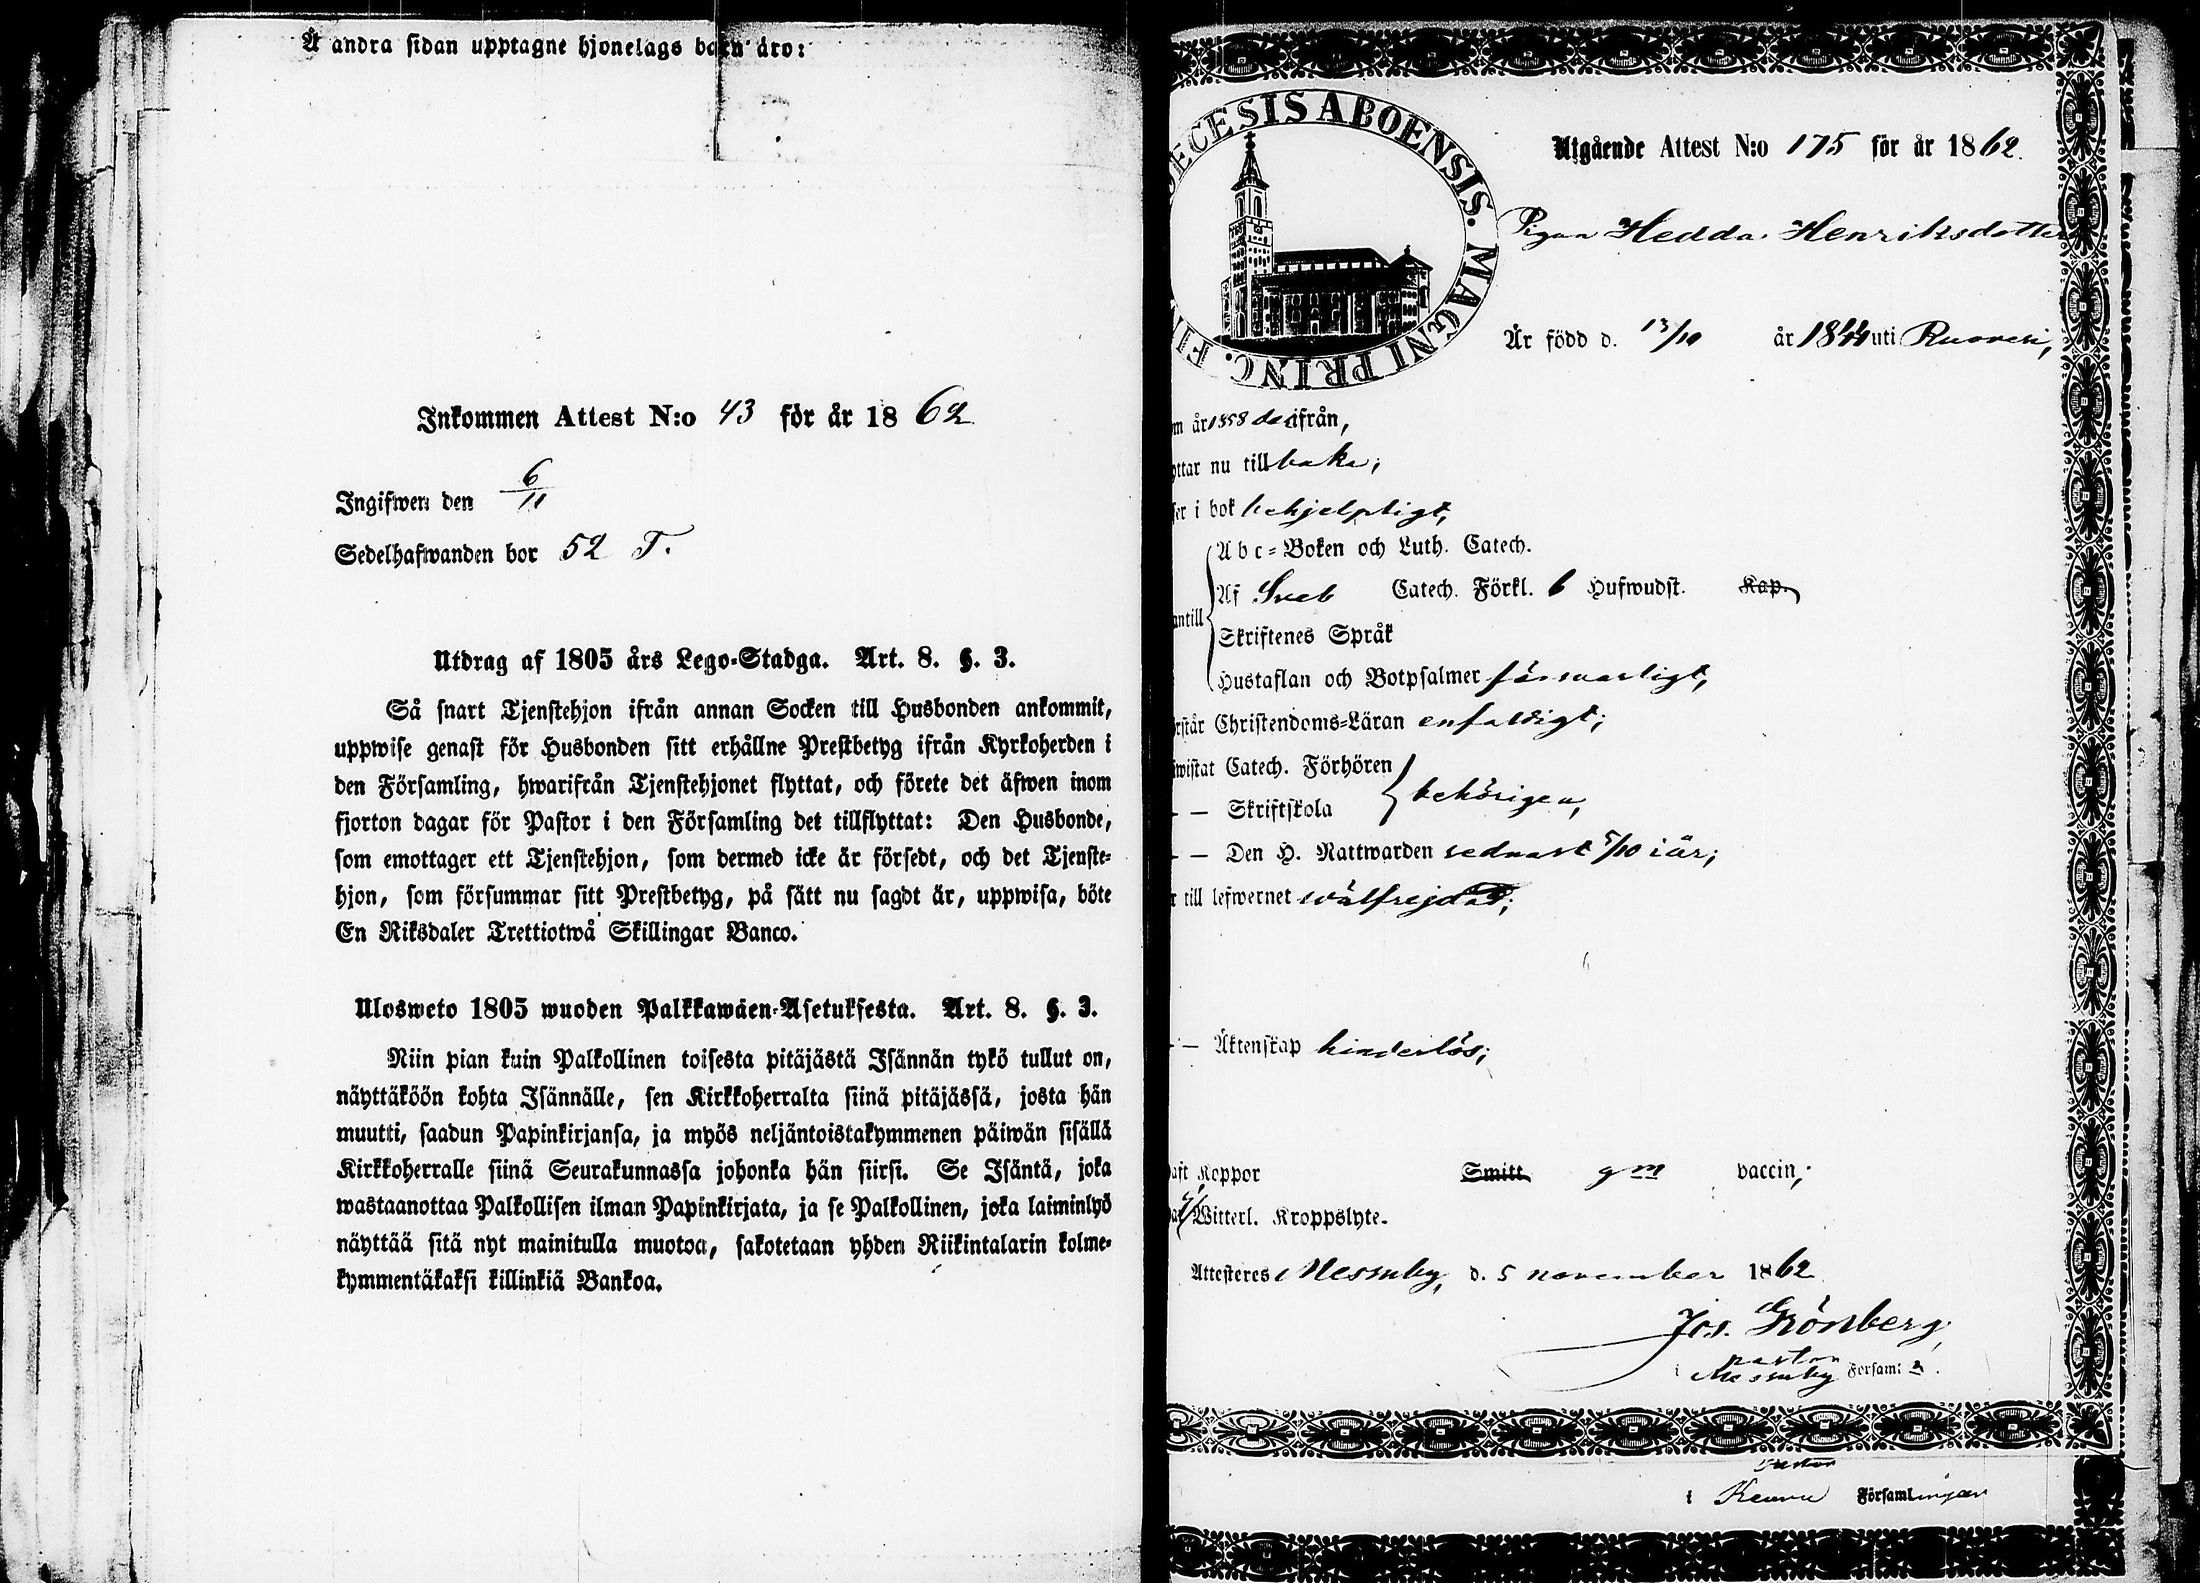 Å andra sidan upptagne hjonelags barn äro:
Inkommen Attest N:o 43 för år 1862
Ingifwen den 6/11
Sedelhafwanden bor 52 T.
Utdrag af 1805 års Lego-Stadga. Art. 8. §. 3.
Så snart Tjenstehjon ifrån annan Socken till Husbonden ankommit,
uppwise genast för Husbonden sitt erhållne Prestbetyg ifrån Kyrkoherden i
den Församling, hwarifrån Tjenstehjonet flyttat, och förete det äfwen inom
fjorton dagar för Pastor i den Församling det tillflyttat: Den Husbonde,
som emottager ett Tjenstehjon, som dermed icke är försedt, och det Tjenste-
hjon, som försummar sitt Prestbetyg, på sätt nu sagdt är, uppwisa, böte
En Riksdaler Trettiotwå Skillingar Banco.
Ulosweto 1805 wuoden Palkkawäen-Asetuksesta. Art. 8. §. 3.
Niin pian kuin Palkollinen toisesta pitäjästä Isännän tykö tullut on,
näyttäköön kohta Isännälle, sen Kirkkoherralta siinä pitäjässä, josta hän
muutti, saadun Papinkirjansa, ja myös neljäntoistakymmenen päiwän sisällä
Kirkkoherralle siinä Seurakunnassa johonka hän siirsi. Se Isäntä, joka
wastaanottaa Palkollisen ilman Papinkirjata, ja se Palkollinen, joka laiminlyö
näyttää sitä nyt mainitulla muotoa, sakotetaan yhden Riikintalarin kolme-
kymmentäkaksi killinkiä Bankoa.
ECESIS ABOENSIS. MAGNI PRINC. FI
Utgående Attest N:o 175 för år 1862.
Pigan Hedda Henriksdotter
Är född d. 13/10 år 1844 uti Ruovesi,
m år 1858 derifrån,
ttar nu tillbaka;
er i bok behjelpligt,
Abc-Boken och Luth. Catech.
Af Sveb Catech. Förkl. 6 Hufwudst. Kap.
antill
Skriftenes Språk
Hustaflan och Botpsalmer försvarligt,
rstår Christendoms-Läran enfaldigt;
wistat Catech. Förhören
— Skriftskola behörigen,
— — Den H. Nattwarden sednast 5/10 i år;
r till lefwernet wälfrejdad;
— Äktenskap hinderlös;
aft Koppor Smitt gm vaccin;
Witterl. Kroppslyte.
Attesteres Messuby, d. 5 november 1862
Jos. Grönberg,
pastor
i Messuby Församl
i Keuru Församlingen